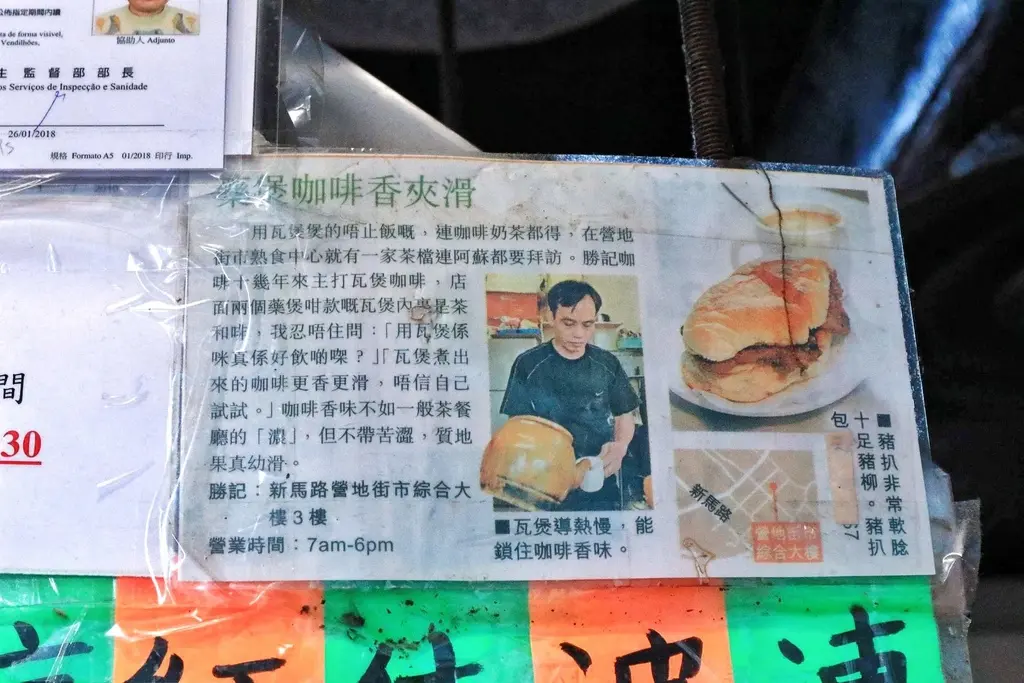 佈指定期間內續
ta de forma visível,
Vendilhões,
協助人 Adjunto
生監督部部長
os Serviços de Inspecção e Sanidade
26/01/2018
規格 Formato A5 01/2018 印行 Imp.
間
30
藥煲咖啡香夾滑
用瓦煲煲的唔止飯嘅，連咖啡奶茶都得，在營地
街市熟食中心就有一家茶檔連阿蘇都要拜訪。勝記咖
啡十幾年來主打瓦煲咖啡，店
面兩個藥煲咁款嘅瓦煲內裏是茶
和啡，我忍唔住問：「用瓦煲係
咪真係好飲啲㗎？」「瓦煲煮出
來的咖啡更香更滑，唔信自己
試試。」咖啡香味不如一般茶餐
廳的「濃」，但不帶苦澀，質地
果真幼滑。
勝記：新馬路營地街市綜合大
樓3樓
營業時間：7am-6pm
■瓦煲導熱慢，能
鎖住咖啡香味。
■豬扒非常軟腍
十足豬柳。豬扒
包
新馬路
營地街市
綜合大樓